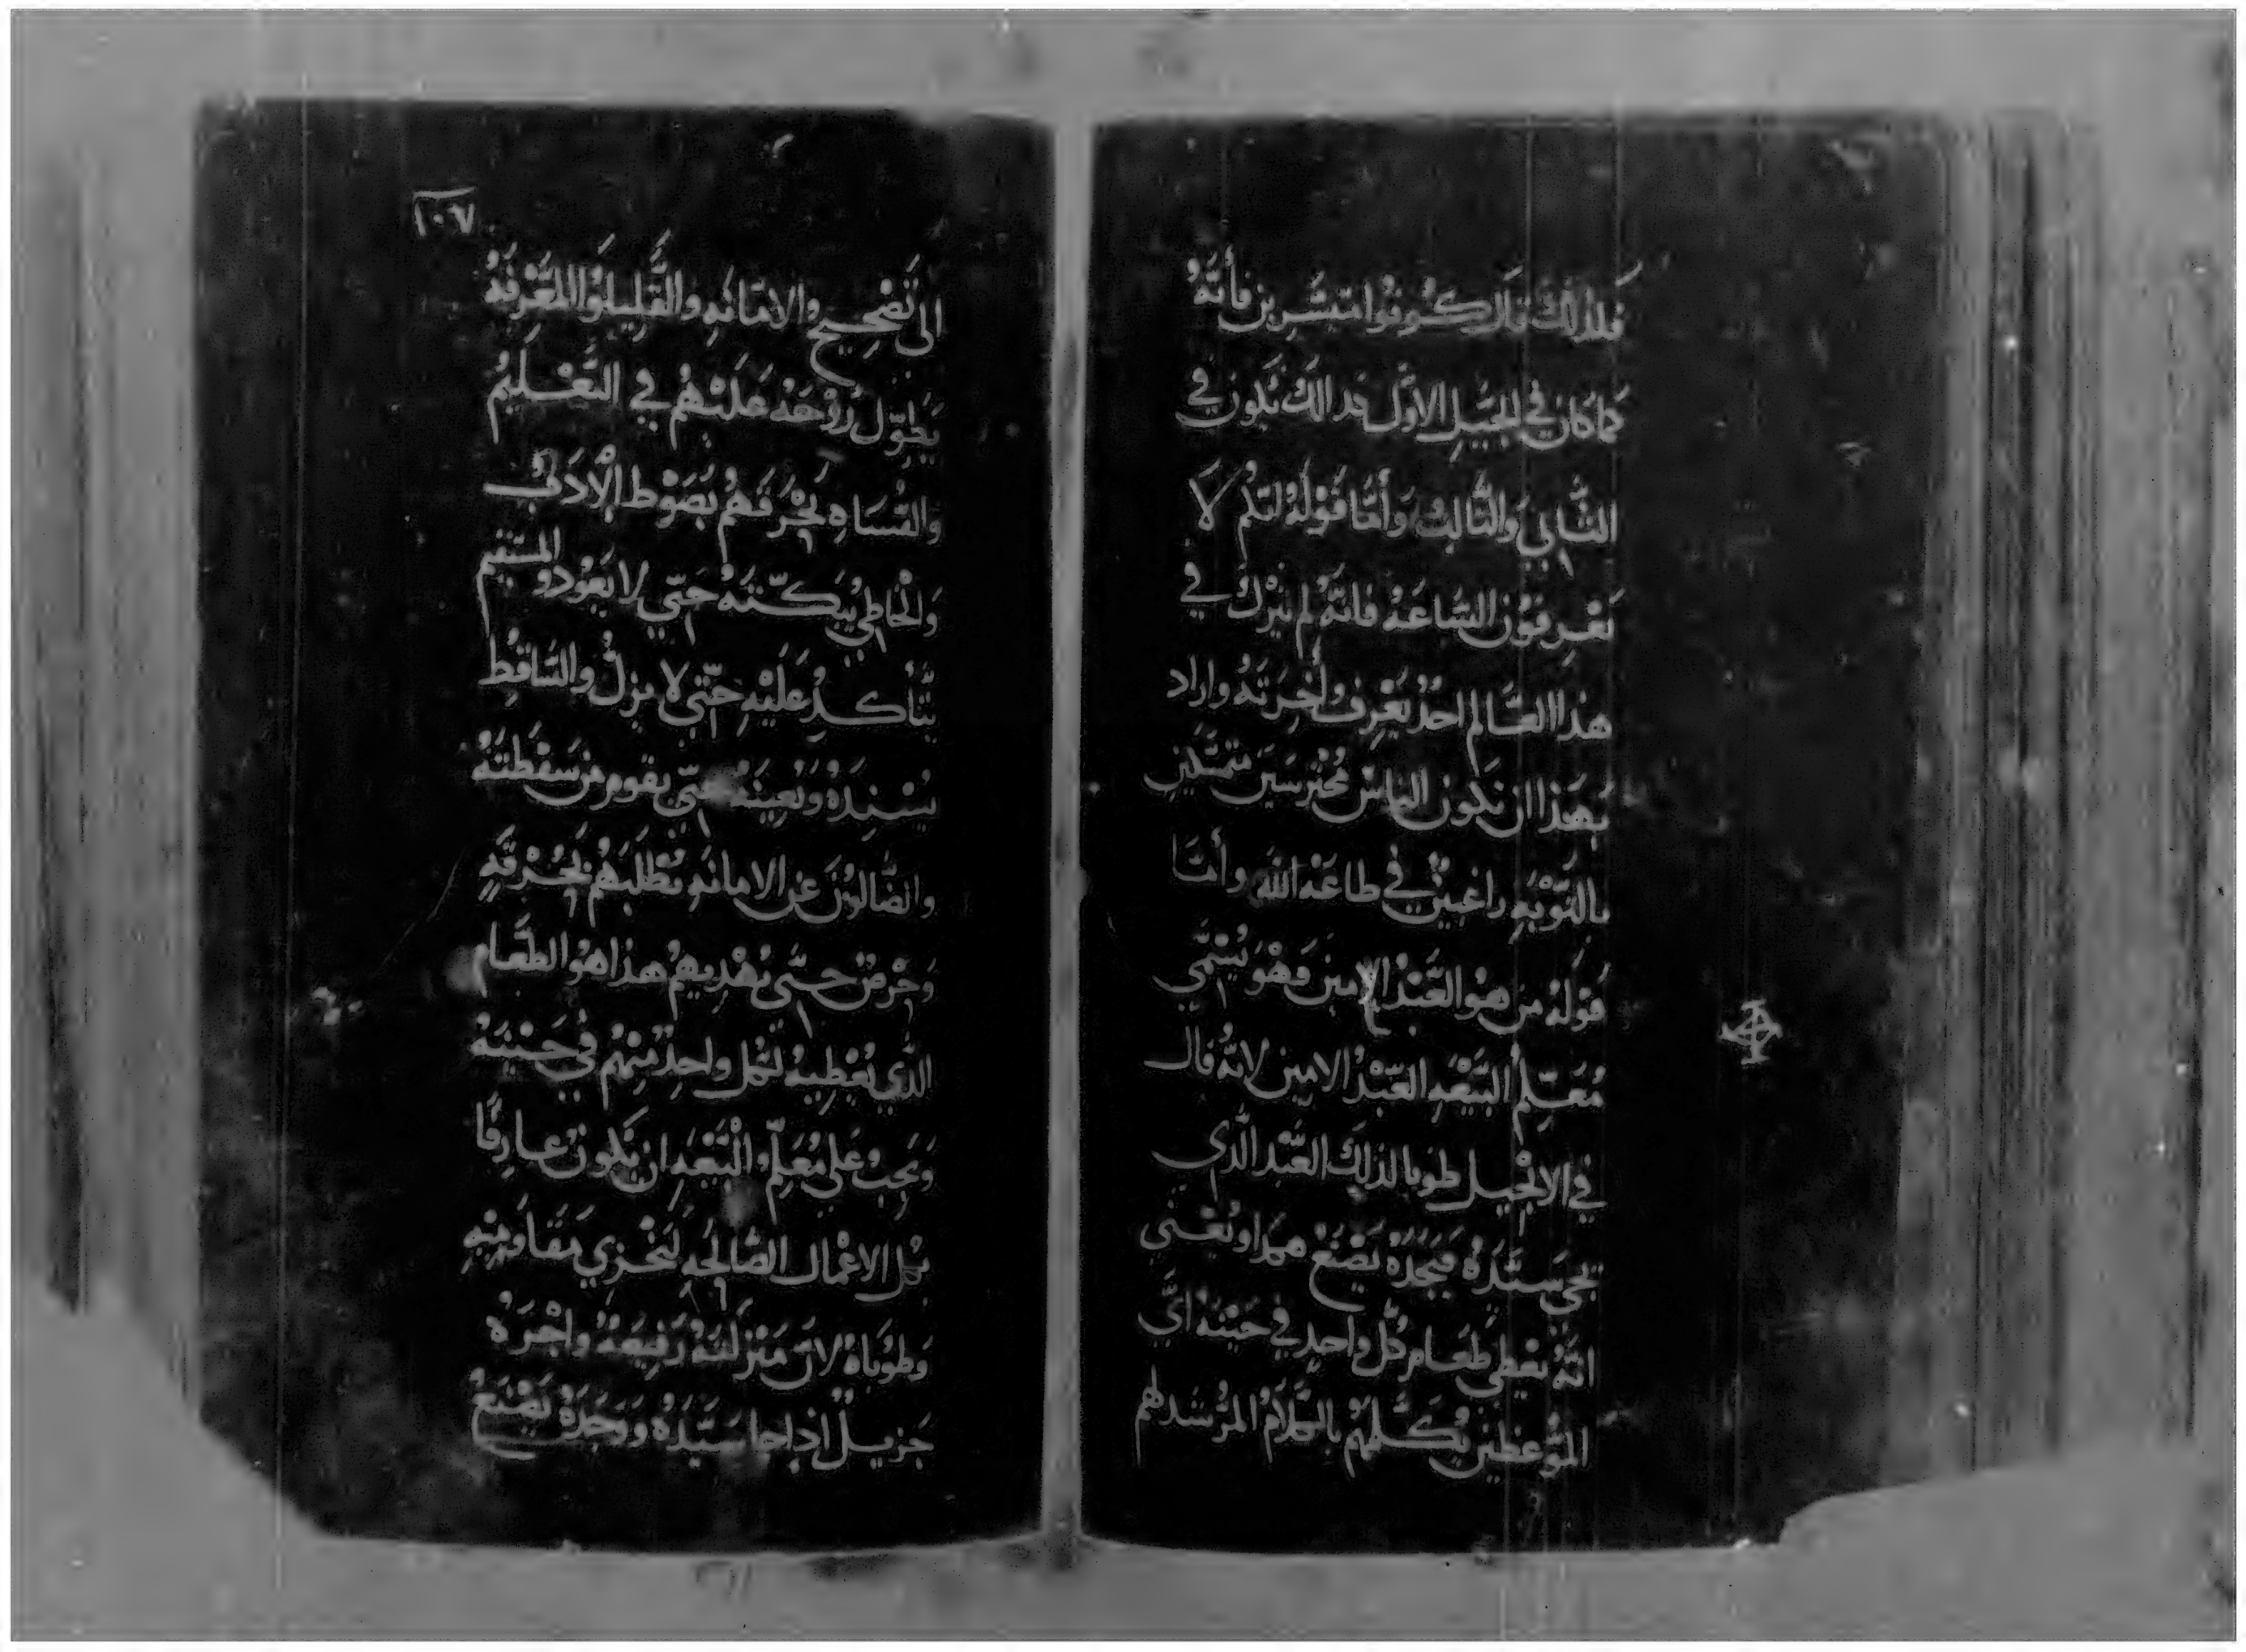 فلذلك قال كونوا متيسرين فانَّهُ
كما كان في الجيل الاول كذالك يكون في
الثاني والثالث وأمّا قولهُ لكم لا
تعرفون الساعه فانهُ لم يترك في
هذا العالم احدٌ يعرف واخرته واراد
بهذا ان تكون الناس محترسين متمسكين
بالتوبه راغبين في طاعة الله وأمّا
قوله من هو العَبْد الامين وهو يُسمّي
مُعَلِّم البيعه العبدُ الامين لانهُ قال
في الانجيل طوبا لذلك العَبْد الذي
يجي سَيّدهُ فيَجدهُ يَصْنَع هكذا ويُعْنى
انّهُ يعطي طعام كل واحد في حينه ايّ
الموعظين يكلمهم بالكلام المرشد لهم
١٠٧
الى تصحيح الامانه والقليلوا المعرفه
يطوّل روحه عليهم في التعليم
والقساه يحرقهم بصوط الادب
والخاطي يبكّته حَتّي لا يعود والمستقيم
يتأكد عليه حتّى لا يزل والساقط
يسنده ويُعينه حتّي يقوم من سقطته
والضالون عن الامانه يطلبهم بحرقه
وحرص حتّى يهديهم هذا هو الطعام
الذي يُعطيه لكل واحد منهم في حينه
ويجب على معلّم البيعه ان يكون عارفًا
بكل الاعمال الصالحه ليخزي مقاومينه
وطوباهُ لان منزلته رفيعه واجره
جزيل اذا جا سيّده ووجده يصنع